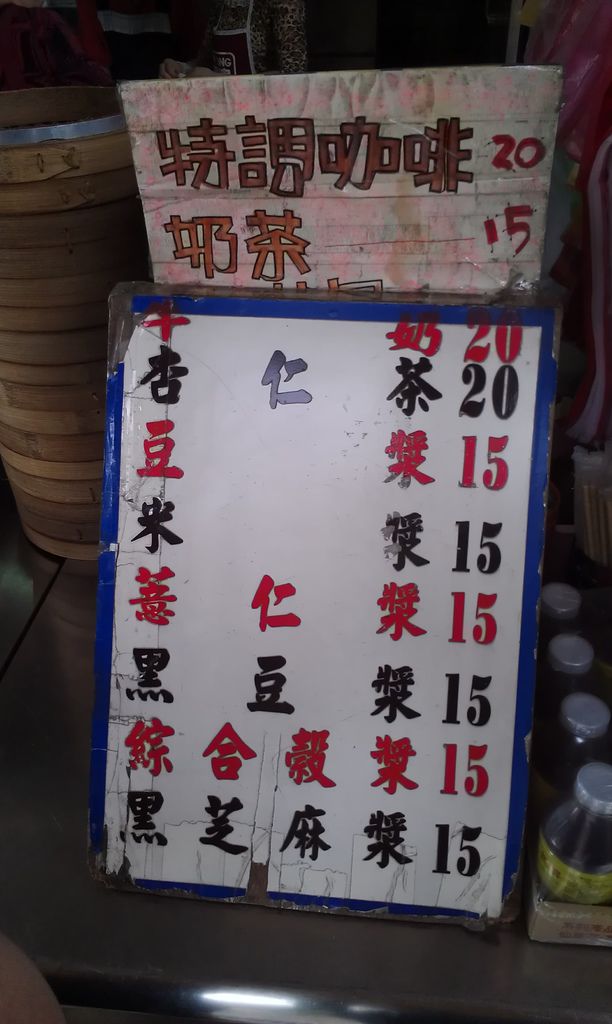 特調咖啡 20
奶茶 15
牛 奶 20
杏 仁 茶 20
豆 漿 15
米 漿 15
薏 仁 漿 15
黑 豆 漿 15
綜 合 穀 漿 15
黑 芝 麻 漿 15